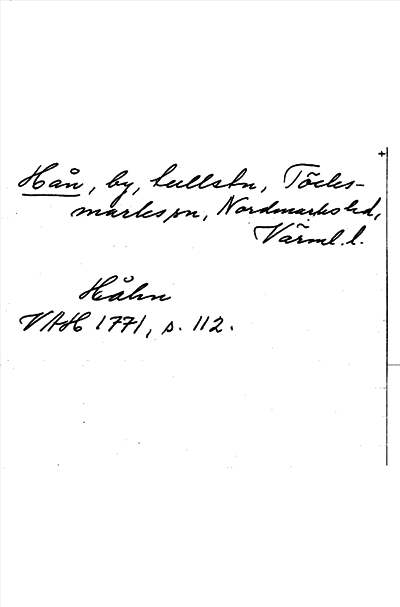 Hån, by, tullstn, Töcks-
marks sn, Nordmarks hd,
Värml. l.
Håhn
VAH 1771, s. 112.